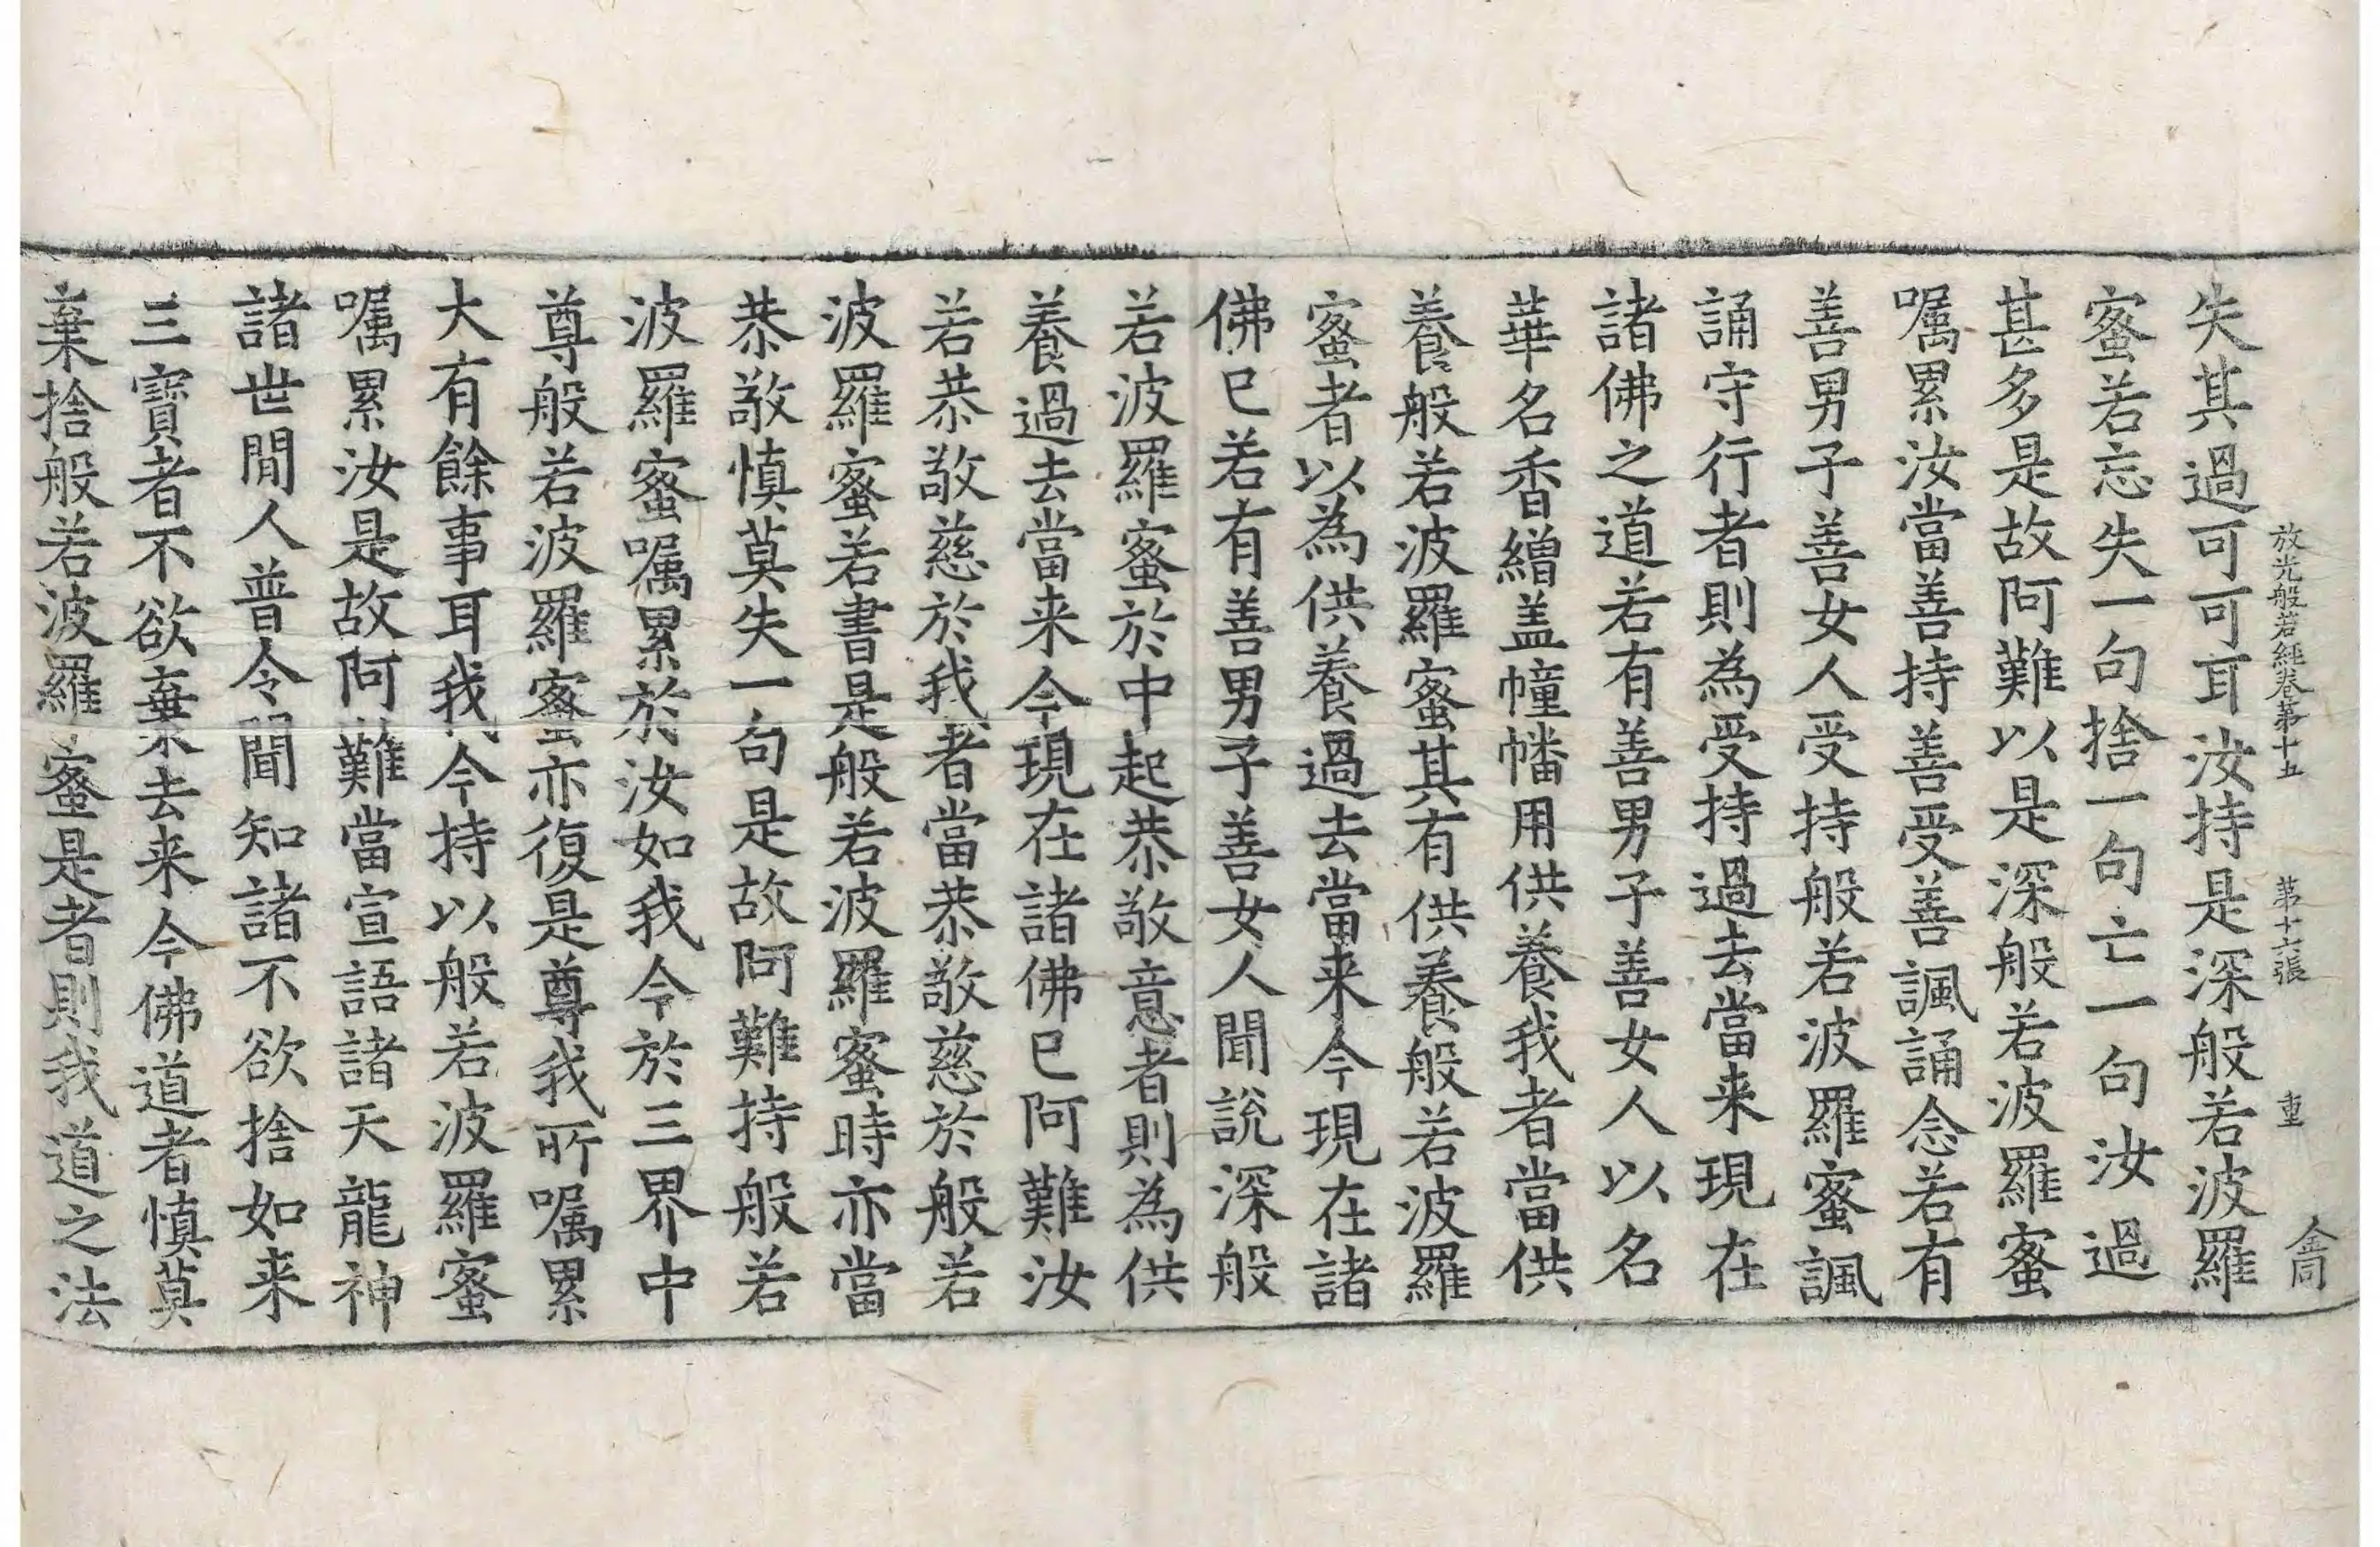 放光般若經卷第十五 第十六張 重 金同
失其過可可耳汝持是深般若波羅
蜜若忘失一句捨一句亡一句汝過
甚多是故阿難以是深般若波羅蜜
嘱累汝當善持善受善諷誦念若有
善男子善女人受持般若波羅蜜諷
誦守行者則為受持過去當来現在
諸佛之道若有善男子善女人以名
華名香繒盖幢幡用供養我者當供
養般若波羅蜜其有供養般若波羅
蜜者以為供養過去當来今現在諸
佛已若有善男子善女人聞說深般
若波羅蜜於中起恭敬意者則為供
養過去當来今現在諸佛已阿難汝
若恭敬慈於我者當恭敬慈於般若
波羅蜜若書是般若波羅蜜時亦當
恭敬慎莫失一句是故阿難持般若
波羅蜜嘱累於汝如我今於三界中
尊般若波羅蜜亦復是尊我所嘱累
大有餘事耳我今持以般若波羅蜜
嘱累汝是故阿難當宣語諸天龍神
諸世閒人普令聞知諸不欲捨如来
三寶者不欲棄去来今佛道者慎莫
棄捨般若波羅蜜是者則我道之法